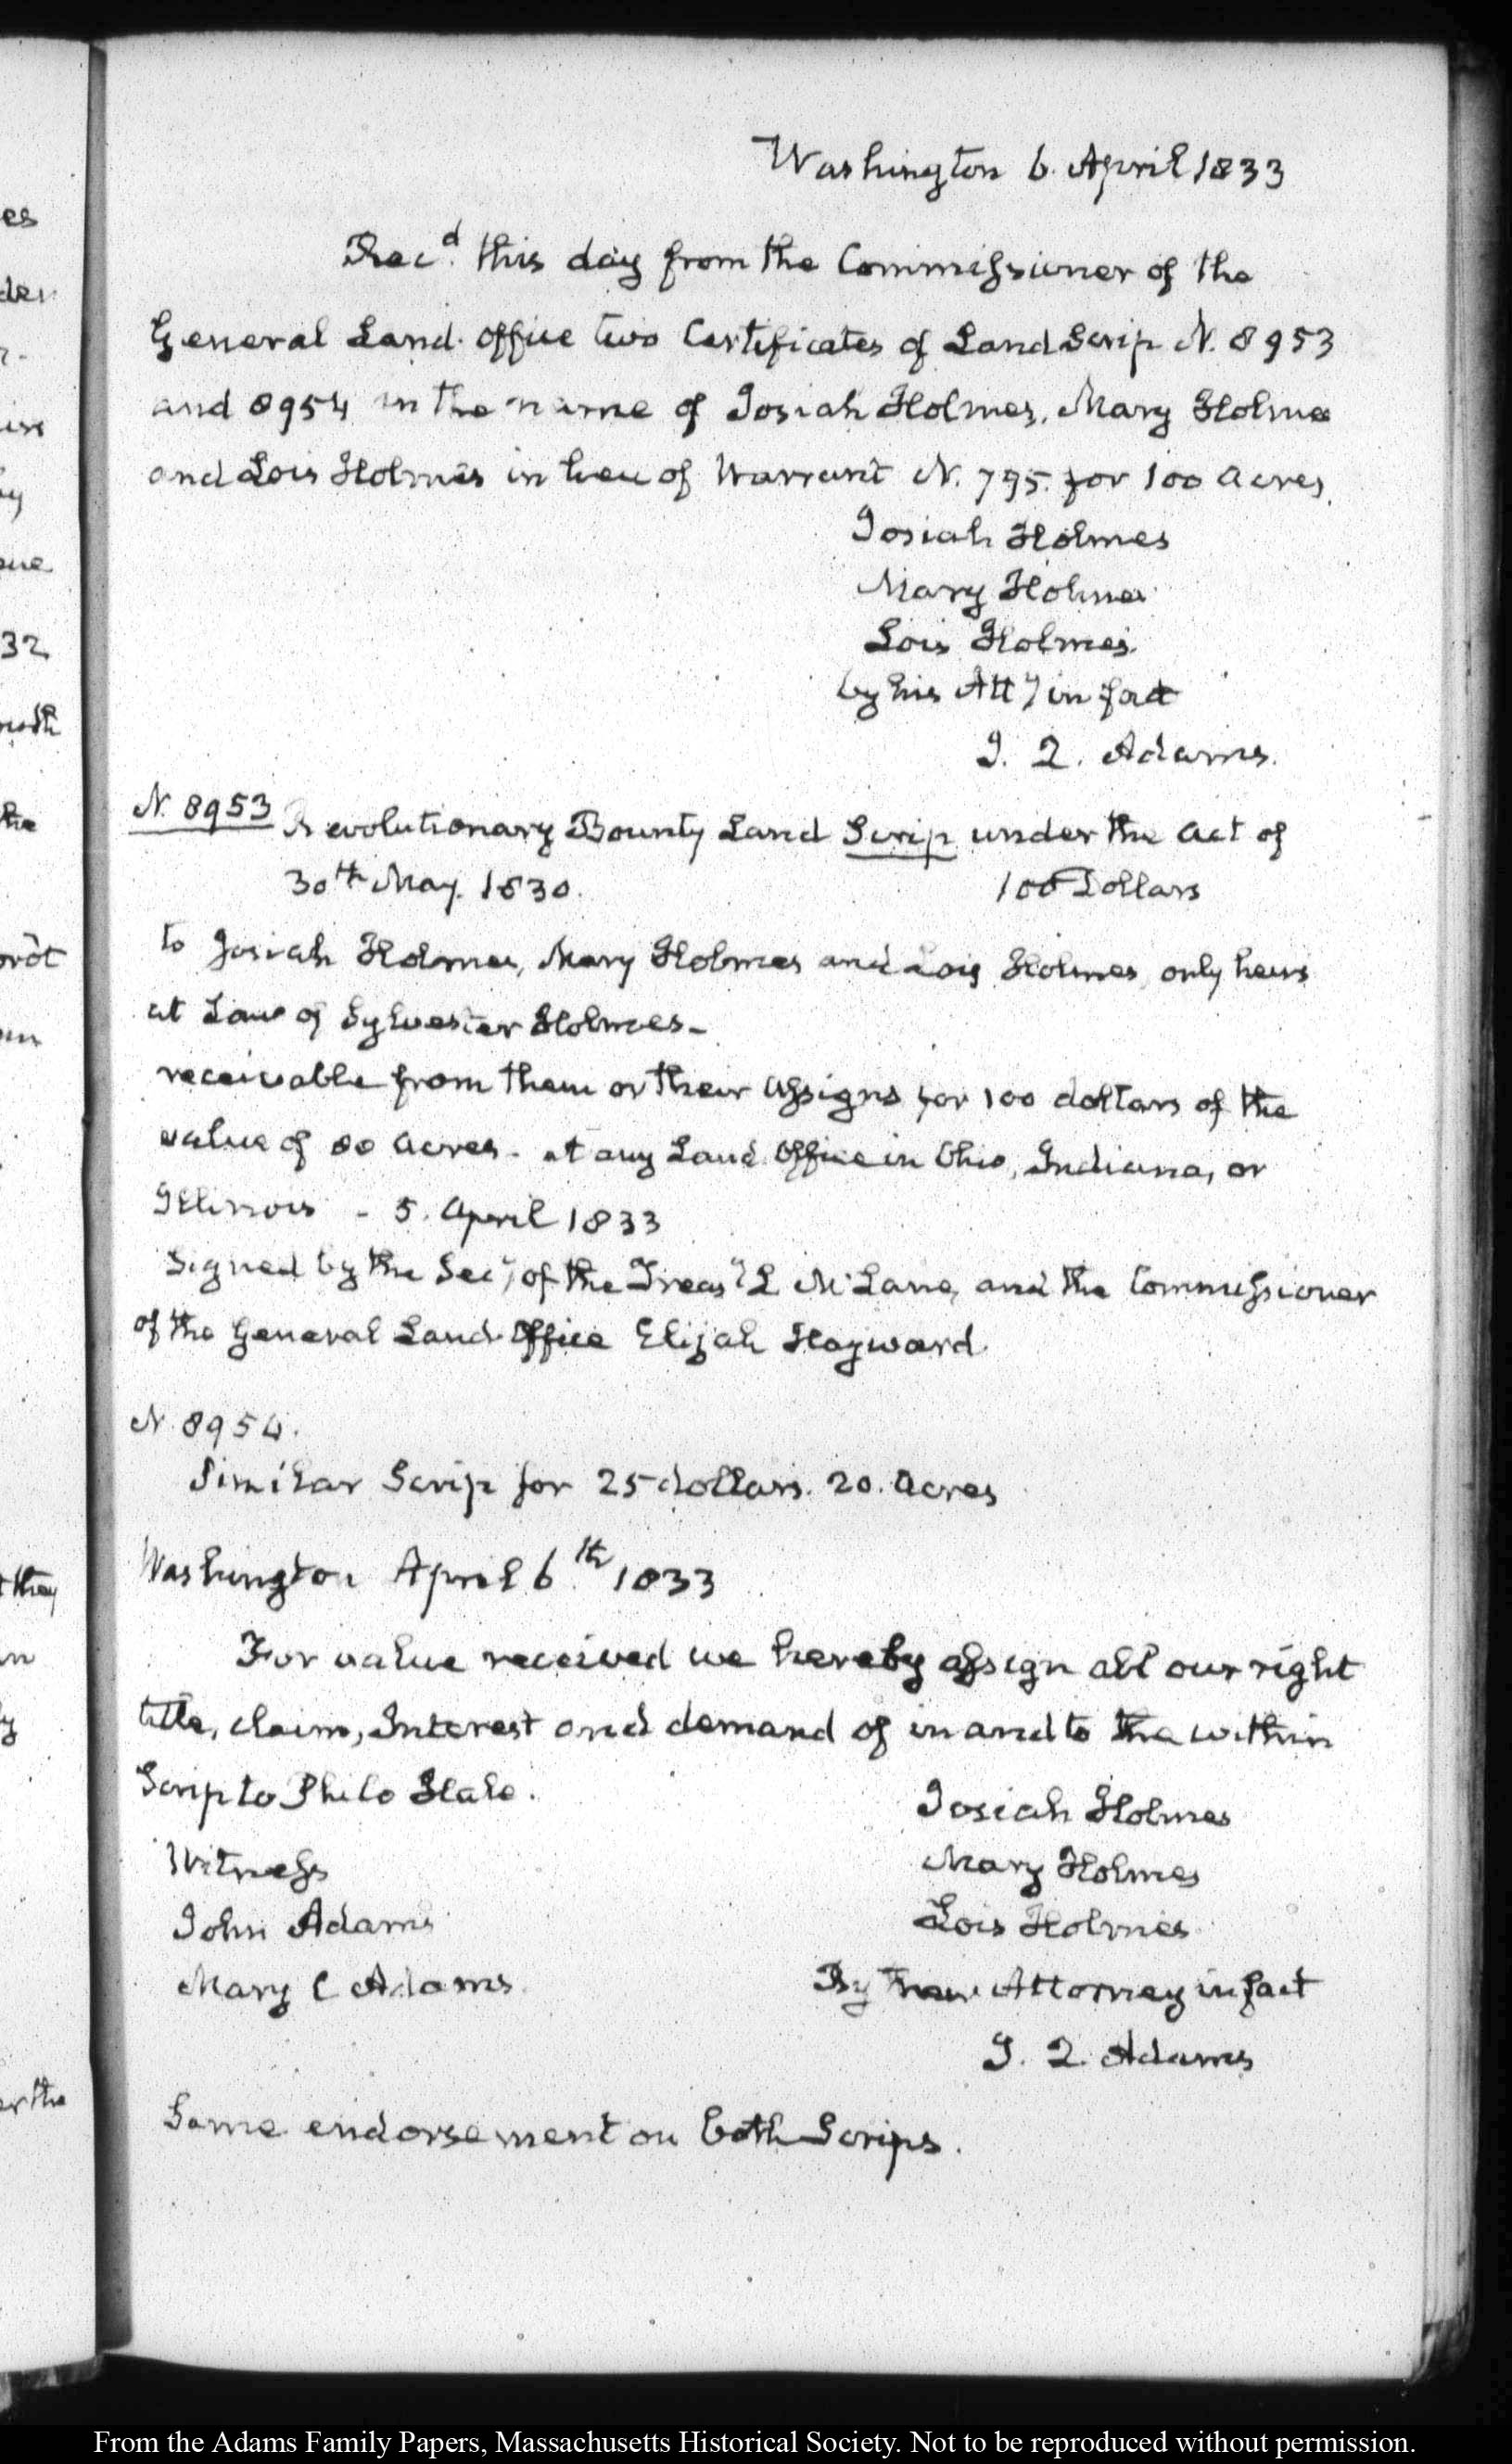 Washington 6. April 1833
Rec.d this day from the Commissioner of the
General Land Office two Certificates of Land Scrip N. 8953
and 8954 in the name of Josiah Holmes, Mary Holmes
and Lois Holmes in lieu of Warrant N. 795. for 100 Acres.
Josiah Holmes
Mary Holmes
Lois Holmes.
by his Atty in fact
J. Q. Adams.
N. 8953 Revolutionary Bounty Land Scrip under the Act of
30th May. 1830. 100 Dollars
to Josiah Holmes, Mary Holmes and Lois Holmes, only heirs
at Law of Sylvester Holmes-
receivable from them or their Assigns for 100 dollars of the
value of 80 Acres - at any Land Office in Ohio, Indiana, or
Illinois - 5. April 1833
Signed by the Secy of the Treasy L McLane, and the Commissioner
of the General Land Office Elijah Hayward.
N. 8954.
Similar Scrip for 25 dollars. 20. Acres
Washington April 6.th 1833
For value received we hereby assign all our right
title, claim, Interest and demand of in and to the within
Scrip to Philo Hale.
Josiah Holmes
Witness
Mary Holmes
John Adams
Lois Holmes
Mary C Adams.
By their Attorney in fact
J. Q. Adams
Same endorsement on both Scrips.
es
32
the
they
or the
From the Adams Family Papers, Massachusetts Historical Society. Not to be reproduced without permission.